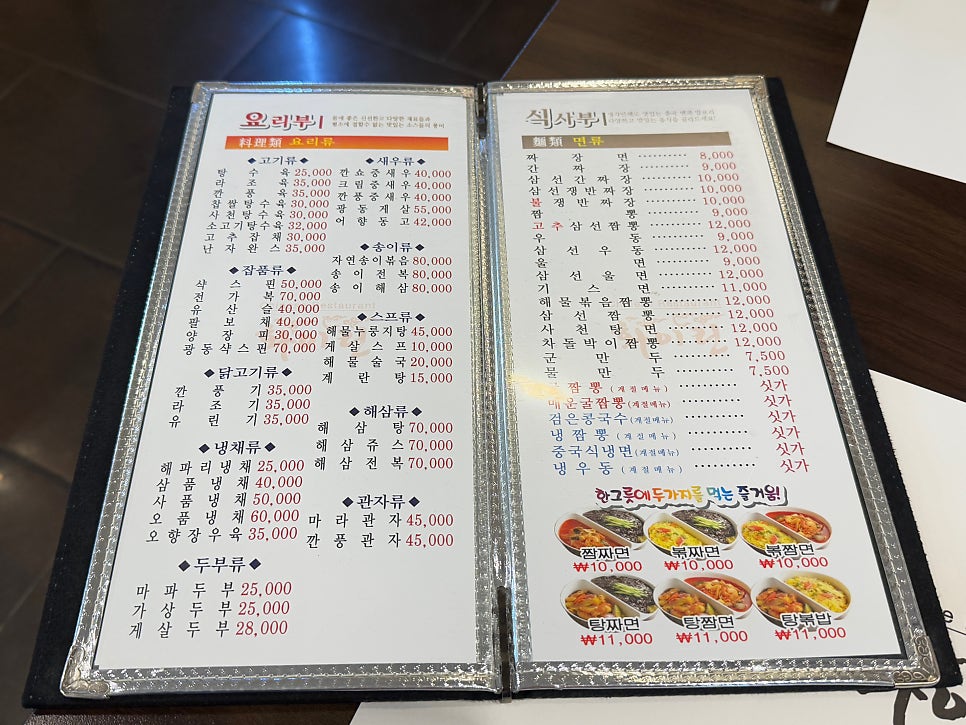 요리부
몸에 좋은 신선한고 다양한 재료들과
평소에 접할수 없는 맛있는 소스들의 풍미
料理類 요리류
◆고기류◆
탕수육 25,000
라조육 35,000
깐풍육 35,000
찹쌀탕수육 30,000
사천탕수육 30,000
소고기탕수육 32,000
고추잡채 30,000
난자완스 35,000
◆잡품류◆
샥스핀 50,000
전가복 70,000
유산슬 40,000
팔보채 40,000
양장피 30,000
광동샥스핀 70,000
◆닭고기류◆
깐풍기 35,000
라조기 35,000
유린기 35,000
◆냉채류◆
해파리냉채 25,000
삼품냉채 40,000
사품냉채 50,000
오품냉채 60,000
오향장우육 35,000
◆두부류◆
마파두부 25,000
가상두부 25,000
게살두부 28,000
◆새우류◆
깐쇼중새우 40,000
크림중새우 40,000
깐풍중새우 40,000
광동게살 55,000
어향동고 42,000
◆송이류◆
자연송이볶음 80,000
송이전복 80,000
송이해삼 80,000
◆스프류◆
해물누룽지탕 45,000
게살스프 10,000
해물술국 20,000
계란탕 15,000
◆해삼류◆
해삼탕 70,000
해삼쥬스 70,000
해삼전복 70,000
◆관자류◆
마라관자 45,000
깐풍관자 45,000
식사부
다양하고 맛있는 음식을 골라드세요!
麵類 면류
짜장면 ·········· 8,000
간짜장 ·········· 9,000
삼선간짜장 ·········· 10,000
삼선쟁반짜장 ·········· 10,000
불쟁반짜장 ·········· 10,000
짬뽕 ·········· 9,000
고추삼선짬뽕 ·········· 12,000
우동 ·········· 9,000
삼선우동 ·········· 12,000
울면 ·········· 9,000
삼선울면 ·········· 12,000
기스면 ·········· 11,000
해물볶음짬뽕 ·········· 12,000
삼선짬뽕 ·········· 12,000
사천탕면 ·········· 12,000
차돌박이짬뽕 ·········· 12,000
군만두 ·········· 7,500
물만두 ·········· 7,500
짬뽕 (계절메뉴) ·········· 싯가
매운굴짬뽕(계절메뉴) ·········· 싯가
검은콩국수(계절메뉴) ·········· 싯가
냉짬뽕 (계절메뉴) ·········· 싯가
중국식냉면(계절메뉴) ·········· 싯가
냉우동 (계절메뉴) ·········· 싯가
한그릇에 두가지를 먹는 즐거움!
짬짜면 볶짜면 볶짬면
₩10,000 ₩10,000 ₩10,000
탕짜면 탕짬면 탕볶밥
₩11,000 ₩11,000 ₩11,000